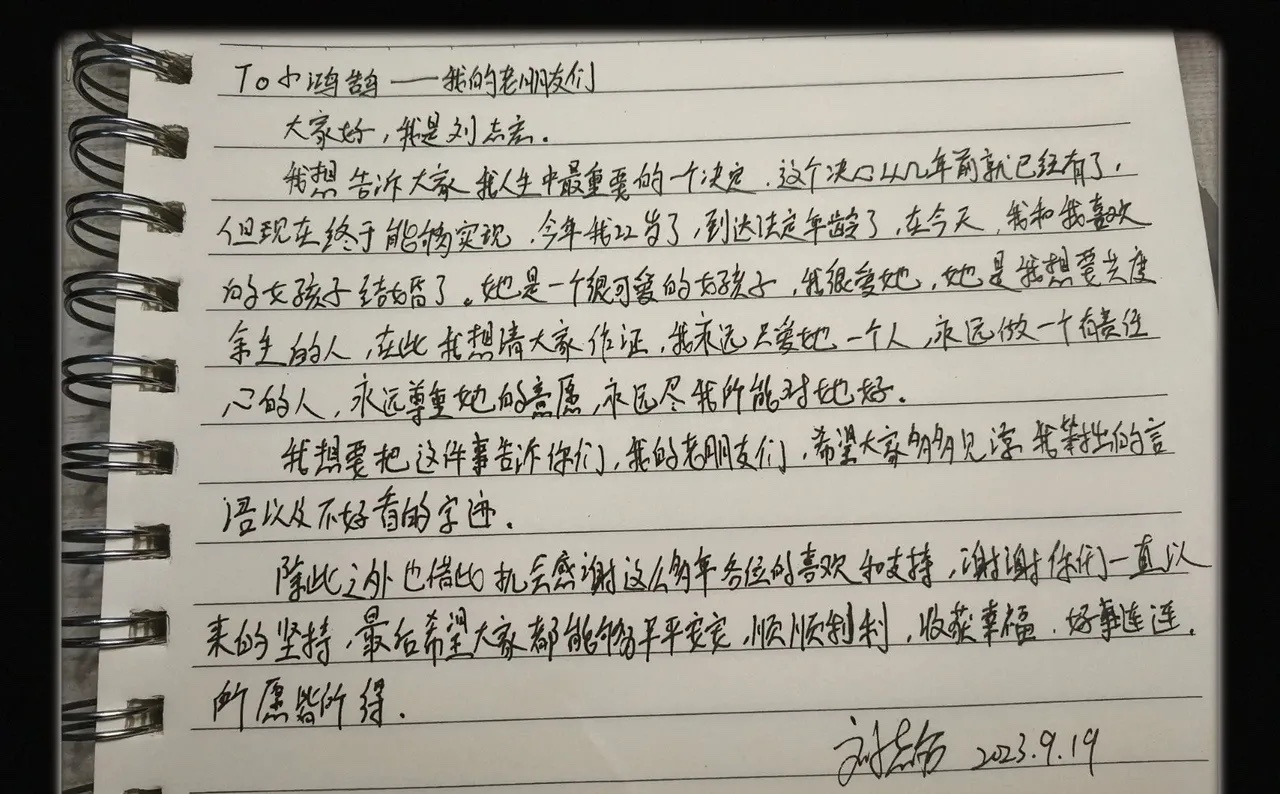 To 小鸿鹄——我的老朋友们
大家好，我是刘志宏。
我想告诉大家我人生中最重要的一个决定，这个决心从几年前就已经有了，
但现在终于能够实现，今年我22岁了，到达法定年龄了，在今天，我和我喜欢
的女孩子结婚了。她是一个很可爱的女孩子，我很爱她，她是我想要共度
余生的人，在此我想请大家作证，我永远只爱她一个人，永远做一个有责任
心的人，永远尊重她的意愿，永远尽我所能对她好。
我想要把这件事告诉你们，我的老朋友们，希望大家多多见谅我笨拙的言
语以及不好看的字迹。
除此之外也借此机会感谢这么多年各位的喜欢和支持，谢谢你们一直以
来的坚持，最后希望大家都能够平平安安，顺顺利利，收获幸福，好事连连，
所愿皆所得。
刘志宏 2023.9.19